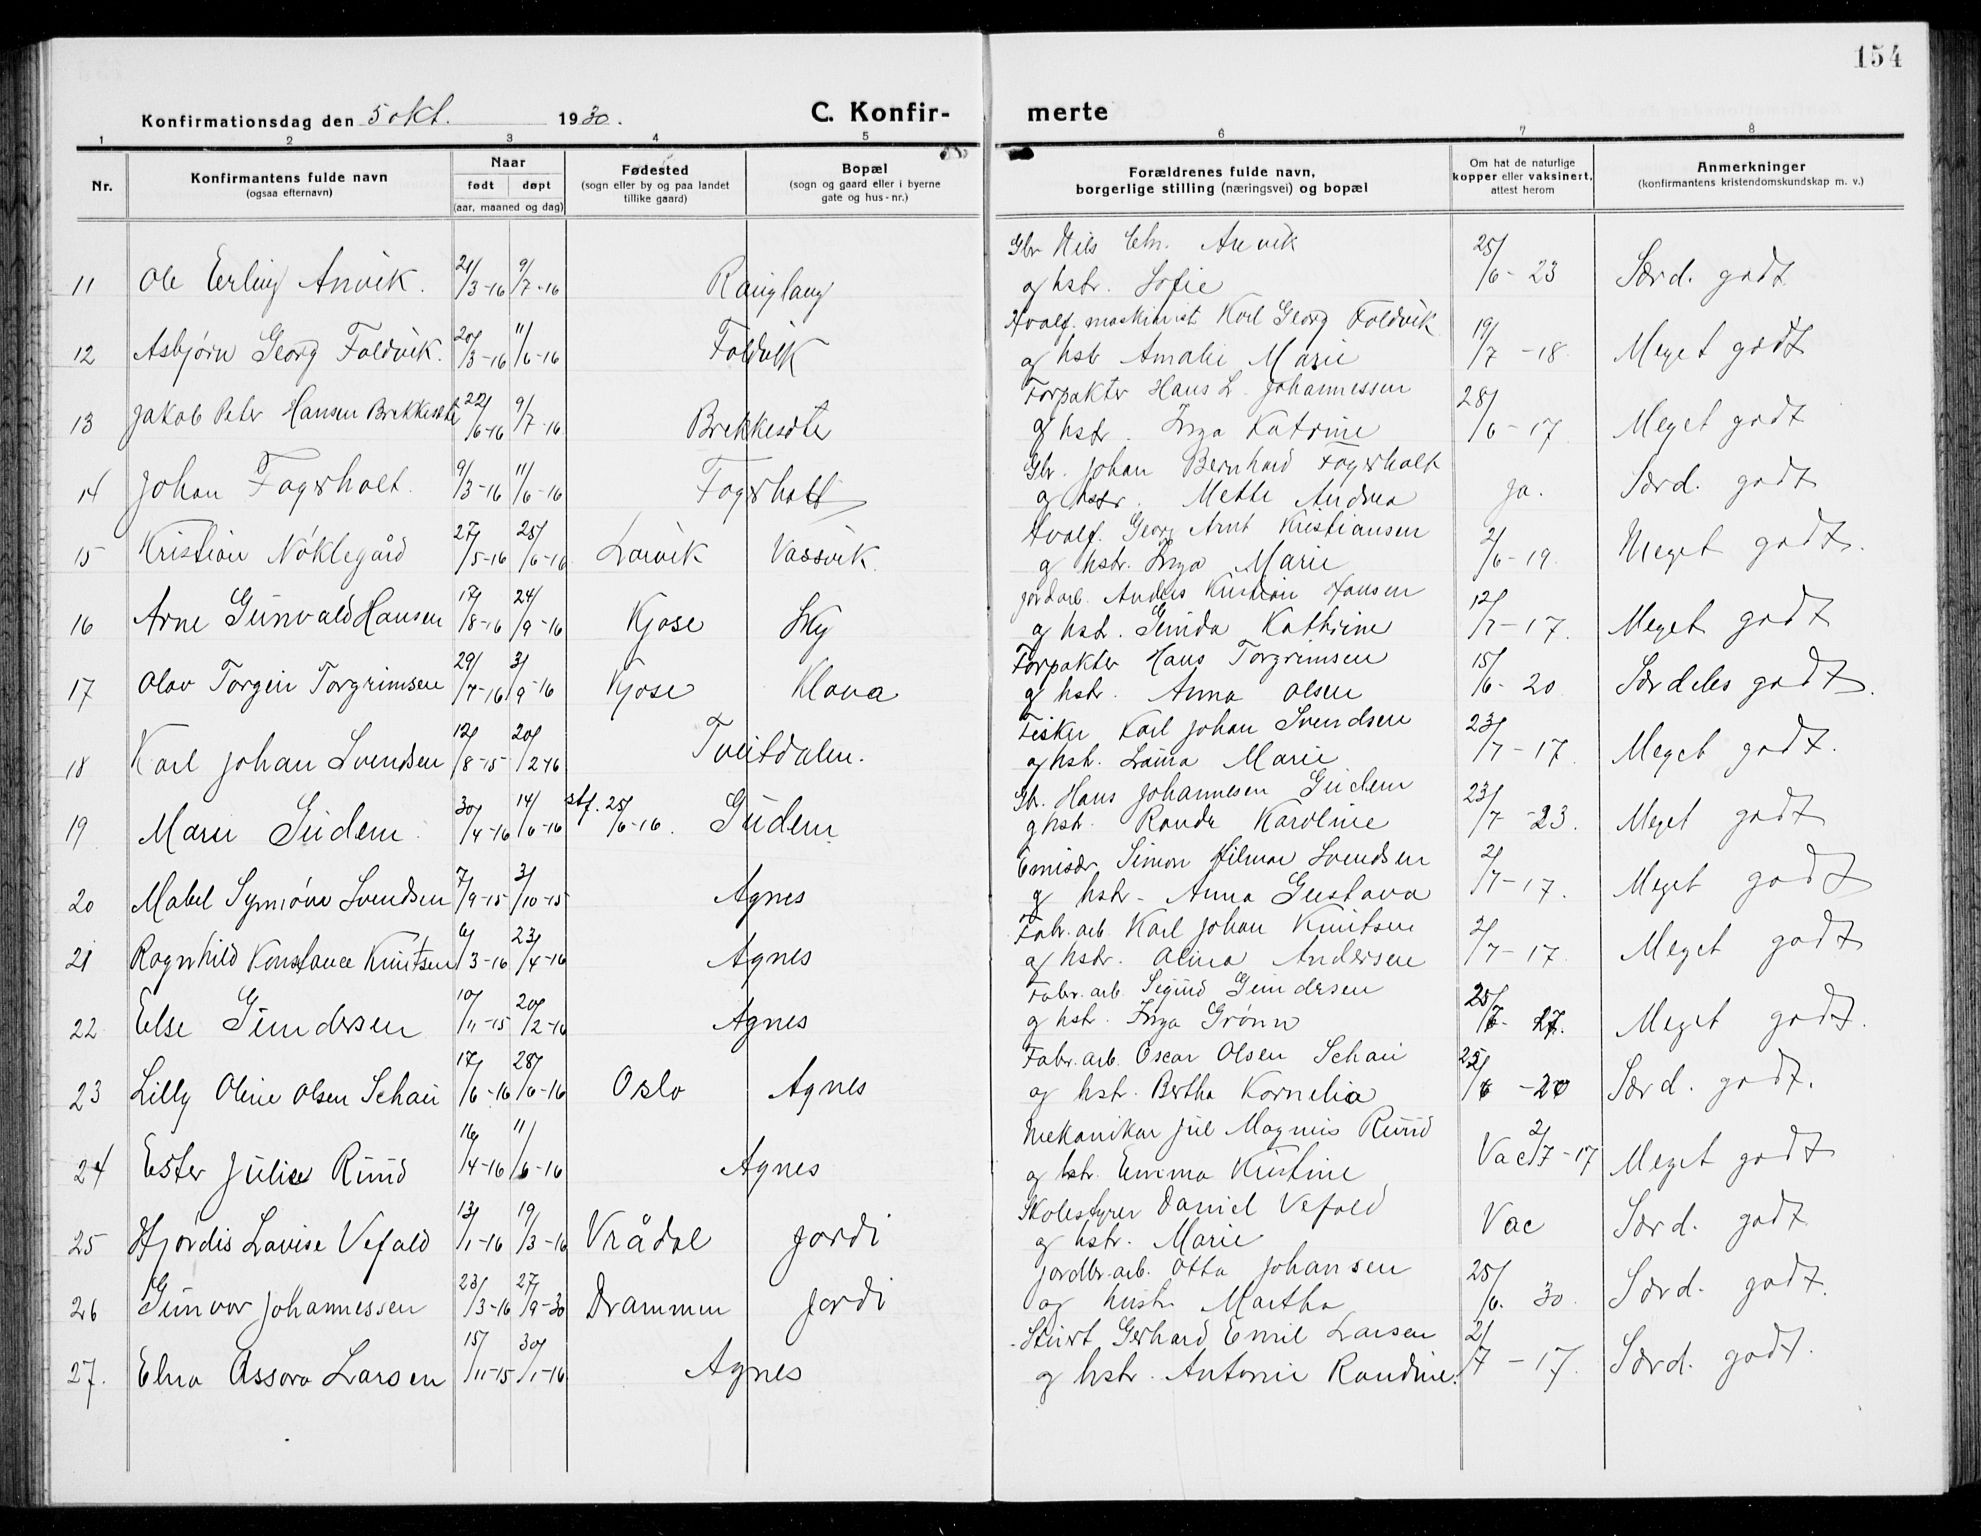 154
Konfirmationsdag den 5 okt. 1930.
C. Konfirmerte
1 2 3 4 5 6 7 8
Nr.
Konfirmantens fulde navn
(ogsaa efternavn)
Naar
født døpt
(aar, maaned og dag)
Fødested
(sogn eller by og paa landet
tillike gaard)
Bopæl
(sogn og gaard eller i byerne
gate og hus-nr.)
Forældrenes fulde navn,
borgerlige stilling (næringsvei) og bopæl
Om hat de naturlige
kopper eller vaksinert,
attest herom
Anmerkninger
(konfirmantens kristendomskundskap m. v.)
Gbr Nils Chr. Anvik
11 Ole Erling Anvik. 21/3-16 9/7-16 og hstr. Sofie 25/6-23 Særd. godt
Hvalf. maskinist Karl Georg Foldvik
12 Asbjørn Georg Foldvik. 20/3-16 11/6-16 Foldvik og hstr Amalie Marie 19/7-18 Meget godt
Forpakter Hans L. Johannessen
13 Jakob Peter Hansen Brekkesete 22/6-16 9/7-16 Brekkesete og hstr. Inga Katrine 28/6-17 Meget godt
Gbr. Johan Bernhard Fagerholt
14 Johan Fagerholt. 9/3-16 11/6-16 Fagerholt og hstr. Mette Andrea ja. Særd. godt
Hvalf. Georg Arnt Kristiansen
15 Kristian Nøklegård 27/5-16 25/6-16 Larvik Vassvik. og hstr. Inga Marie 2/6-19. Meget godt.
Jordarb. Anders Kristian Hansen
16 Arne Gunvald Hansen 17/8-16 24/9-16 Kjose Sky og hstr. Gunda Kathrine 12/7-17. Meget godt
Forpakter Hans Torgrimsen
17 Olav Torgeir Torgrimsen 29/7-16 3/9-16 Kjose Klova og hstr. Anna Olsen 15/6-20 Særdeles godt.
Fisker Karl Johan Svendsen
18 Karl Johan Svendsen 12/8-15 20/2-16 Tveitdalen. og hstr. Laura Marie 23/7-17. Meget godt.
Gbr. Hans Johannesen Gudem
19 Maren Gudem. 30/4-16 14/6-16 stf. 25/6-16. Gudem og hstr. Karoline 23/7-23. Meget godt
Emisær Simon Hilmar Svendsen
20 Mabel Synnøve Svendsen 7/9-15 3/10-15 Agnes og hstr. Anna Gustava 2/7-17. Meget godt
Fabr. arb. Karl Johan Knutsen
21 Ragnhild Konstance Knutsen 6/3-16 23/4-16 Agnes og hstr. Alina Andersen 2/7-17. Meget godt
Fabr. arb. Sigurd Gundersen
22 Else Gundersen 10/11-15 20/2-16 Agnes og hstr. Inga Grønn 25/6-27. Meget godt.
Fabr. arb. Oscar Olsen Schau
23 Lilly Oline Olsen Schau 17/6-16 28/6-16 Oslo Agnes og hstr. Bertha Kornelia 25/6-20 Særd. godt.
Mekaniker Jul Magnus Ruud
24 Ester Julie Ruud 16/4-16 11/6-16 Agnes og hstr. Emma Kristine Vac 2/7-17 Meget godt
Skolestyrer Daniel Vefald
25 Hjørdis Lovise Vefald 13/1-16 19/3-16 Vrådal Jordi og hstr. Marie Vac Særd. godt
Jordbr. arb. Otto Johansen
26 Gunvor Johannessen 23/3-16 27/9-30 Drammen Jordi og hustr. Martha 25/6. 30. Særd. godt.
Stuert Gerhard Emil Larsen
27. Elna Assora Larsen 15/11-15 30/1-16 Agnes og hstr. Antonie Randine. 2/7-17. Særd. godt.